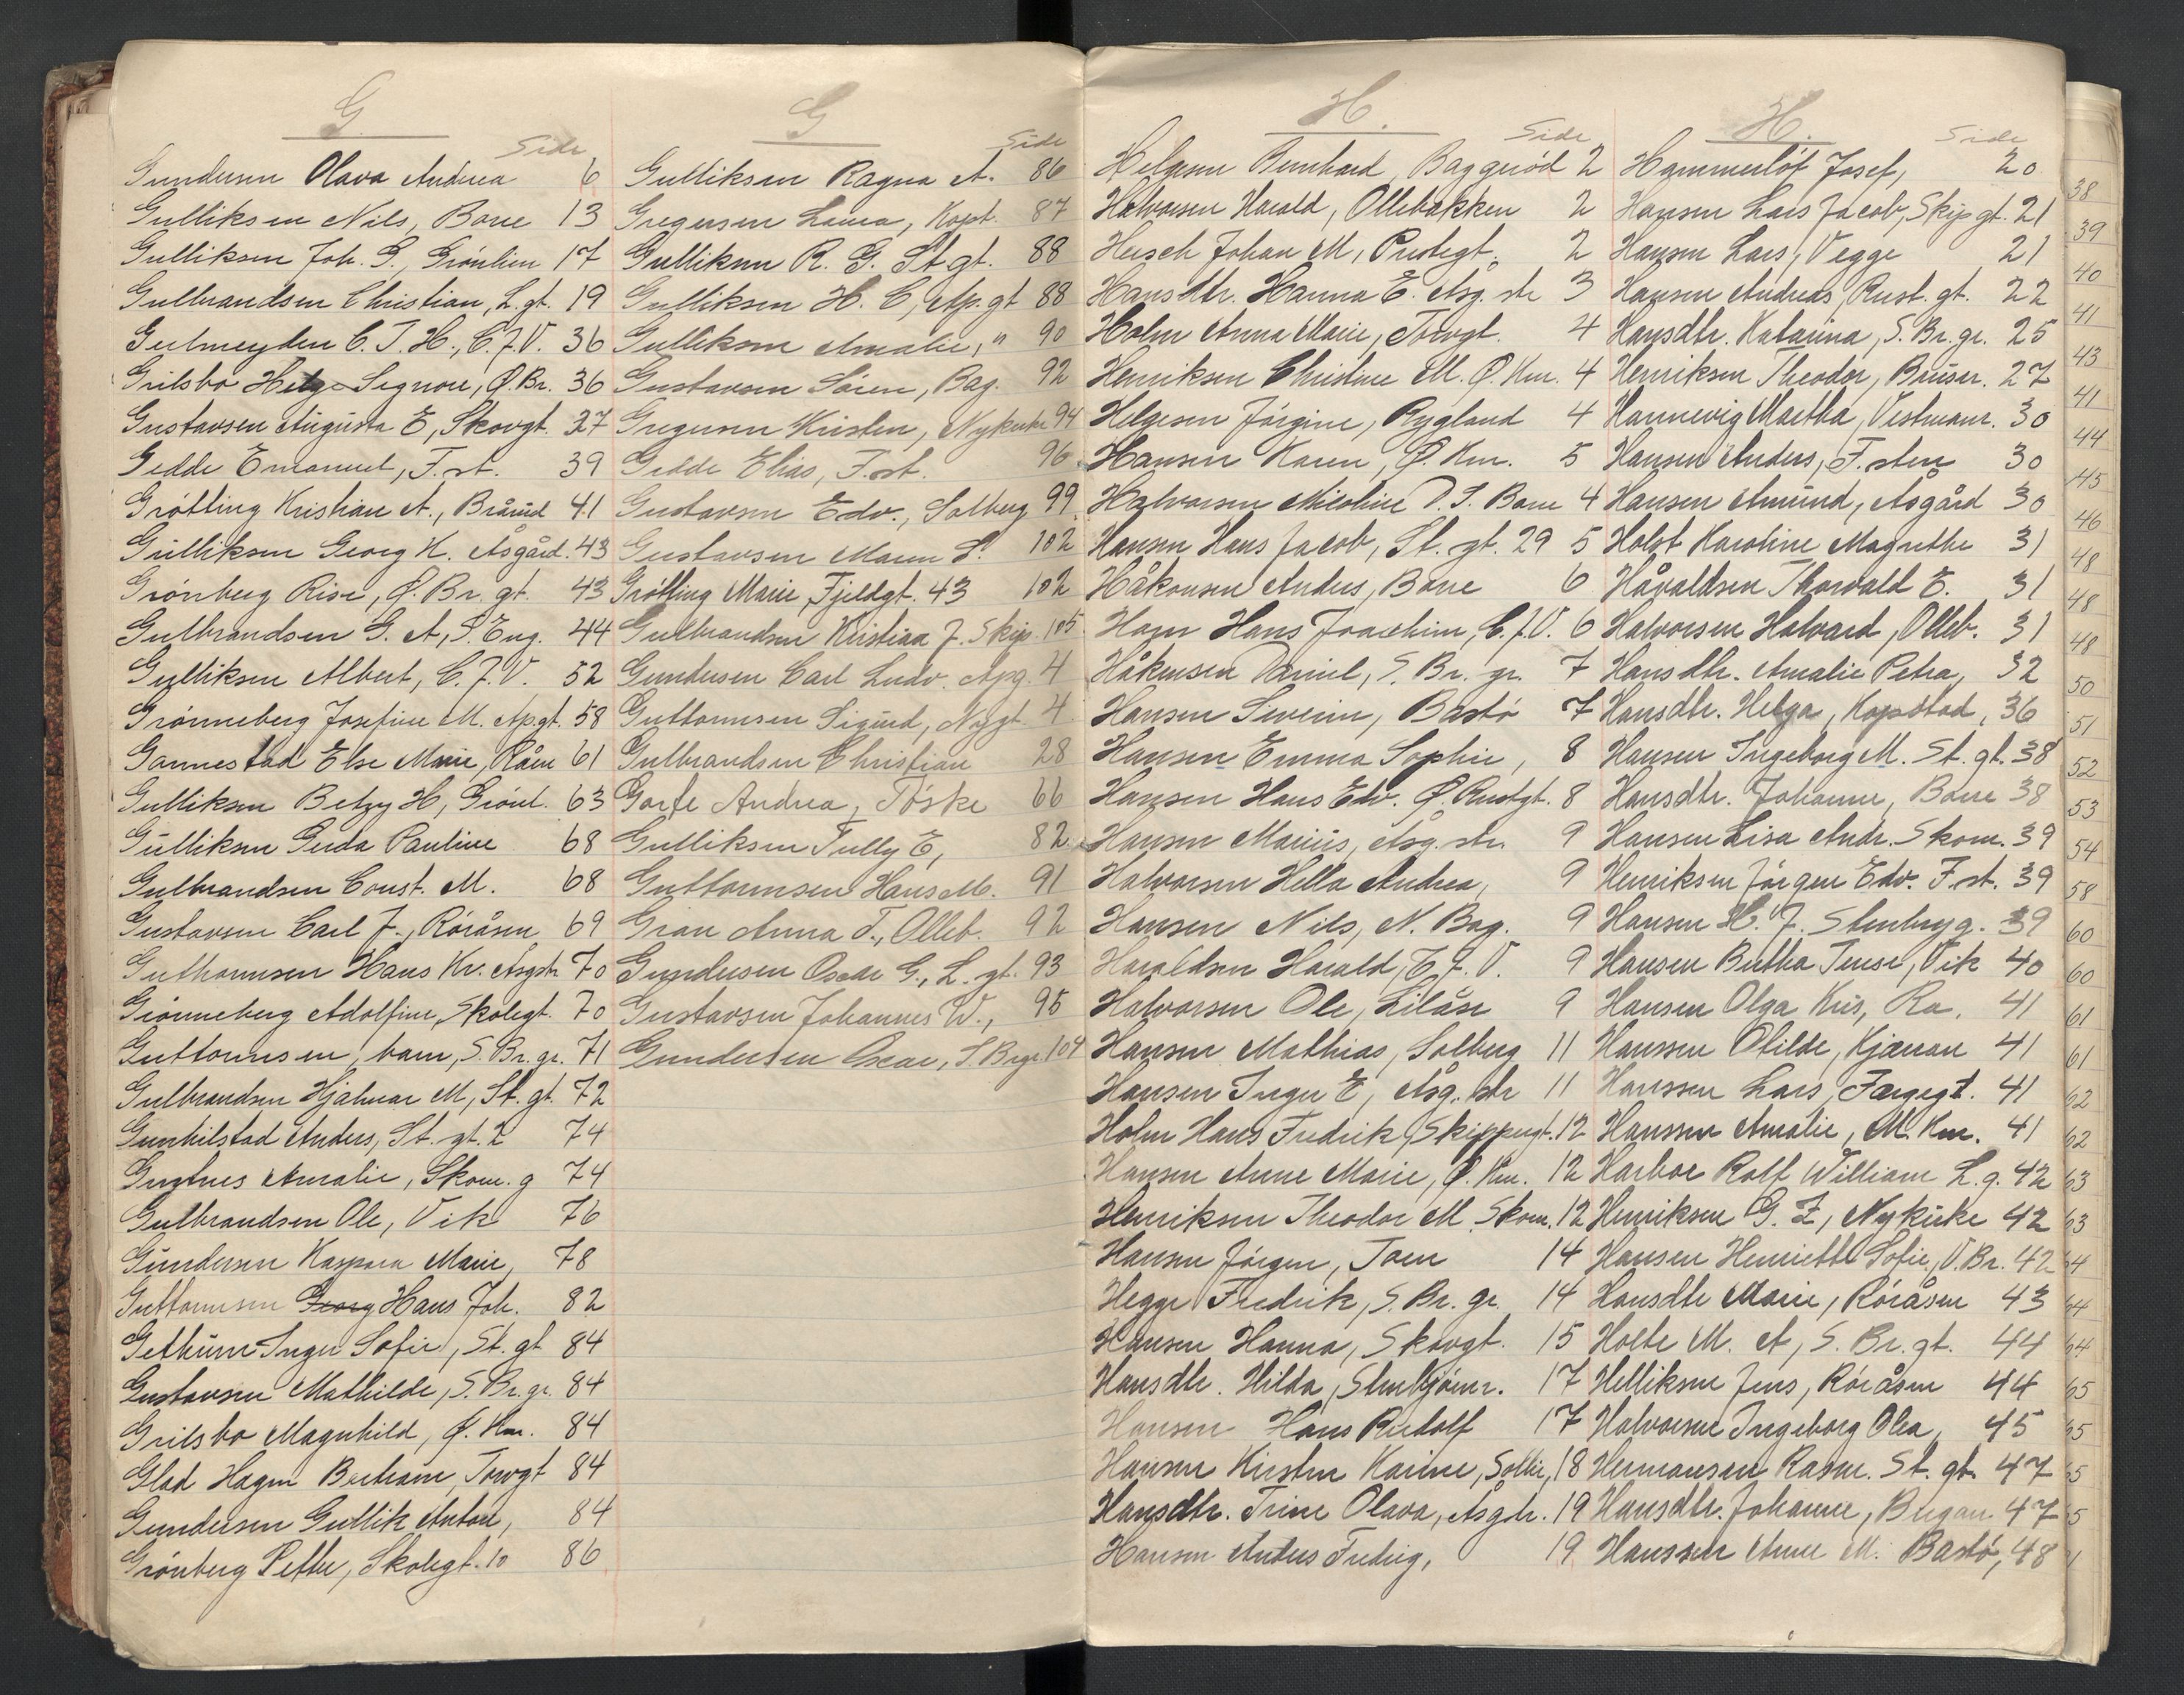 G.
Side
Gundersen Olava Andrea 6
Gulliksen Nils, Borre 13
Gulliksen Joh. G., Grönlien 17
Gulbrandsen Christian, L.gt. 19
Gulmeyden C. T. H., C.J.V. 36
Grilsbo Helge Signore, Ø.Br. 36
Gustavsen Augusta E, Skovgt. 37
Gedde Emanuel, F.st. 39
Grötting Kristian A., Bråröd 41
Gulliksen Georg K. Åsgård. 43
Grönberg Rise, Ø. Br. gt. 43
Gulbrandsen G. A, S. Eng. 44
Gulliksen Albert, C. J. V. 52
Grönneberg Josefine M. Ap.gt. 58
Gannestad Else Marie, Råen 61
Gulliksen Betzy H, Grönl. 63
Gulliksen Gerda Pauline 68
Gulbrandsen Const. M. 68
Gustavsen Carl F., Röråsen 69
Guthormsen Hans Kr. Åsgstr. 70
Grönneberg Adolfine, Skolegt. 70
Guttormsen, barn, S. Br. gr. 71
Gulbrandsen Hjalmar M, St. gt. 72
Gunhilstad Anders, St. gt. 2 74
Amalie, Skom. g 74
Gulbrandsen Ole, Vik 76
Gundersen Kaspara Marie, 78
Guttormsen Georg Hans Joh. 82
Inger Sofie, St. gt 84
Gustavsen Mathilde, S. Br. gr. 84
Grilsbo Magnhild, Ø. Km. 84
Glad Hagen Bertram, Torvgt 84
Gundersen Gullik Anton, 84
Grönberg Petter, Skolegt. 10 86
G
Side
Gulliksen Ragna A. 86
Gregersen Laura, Kopt. 87
Gulliksen R. G. St.gt. 88
Gulliksen H. C, Ap.gt 88
Gulliksen Amalie, " 90
Gustavsen Sören, Bag. 92
Gregersen Kristen, Nykirke 94
Gedde Elias, F.st. 96
Gustavsen Edv., Solberg 99
Gustavsen Maren L. 102
Grötting Marie, Fjeldgt. 43 102
Gulbrandsen Kristian J. Skip. 105
Gundersen Carl Ludv. Apg. 4
Guttormsen Sigurd, Nygt. 4
Gulbrandsen Christian 28
Andrea, Töske 66
Gulliksen Tully E, 82
Guttormsen Hans M. 91
Gran Anna T., Olleb. 92
Gundersen Oscar G., L. gt. 93
Gustavsen Johannes W., 95
Gundersen Oscar, S. Brgr. 104
H.
Side
Helgesen Bernhard, Baggeröd 2
Halvorsen Harald, Ollebakken 2
Husch Johan M, Prestegt. 2
Hansdtr. Hanna E. Åsg. str 3
Holm Anna Marie, Torvgt. 4
Henriksen Christine M. Ø. Km. 4
Helgesen Jörgine, Rygland 4
Hansen Karen, Ø. Km. 5
Halvorsen Nicoline D. S. Borre 4
Hansen Hans Jacob, St. gt. 29 5
Håkonsen Anders, Borre 6
Horn Hans Joachim, C. J. V. 6
Håkensen Daniel, S. Br. gr. 7
Hansen Severin, Bastö 7
Hansen Emma Sophie, 8
Hansen Hans Edv. Ø. Rustgt. 8
Hansen Marius, Åsg. str. 9
Halvorsen Hella Andrea, 9
Hansen Nils, N. Bag. 9
Haraldsen Harald, C. J. V. 9
Halvorsen Ole, Lilåse 9
Hansen Mathias, Solberg 11
Hansen Inger E, Åsg. str 11
Holm Hans Fredrik, Skippergt. 12
Hansen Anne Marie, Ø. Km. 12
Henriksen Theodor M. Skom. 12
Hansen Jörgen, Toen 14
Hegge Fredrik, S. Br. gr. 14
Hansen Hanna, Skovgt. 15
Hansdtr. Hilda, Stenbjörnr. 17
Hansen Hans Rudolf 17
Hansen Kirsten Karine, Solli, 18
Hansdtr. Trine Olava, Åsgstr. 19
Hansen Anders Fredrig, 19
H.
Side
Hammerlöf Josef, 20
Hansen Lars Jacob, Skipgt. 21
Hansen Lars, Vegge 21
Hansen Andreas, Rust. gt. 22
Hansdtr. Katarina, S. Br. gr. 25
Henriksen Theodor, Bruser. 27
Hannevig Martha, Vestmanr. 30
Hansen Anders, F. sten 30
Hansen Amund, Åsgård 30
Holst Karoline Magrethe 31
Håvaldsen Thorvald E. 31
Halvorsen Halvard, Olleb. 31
Hansdtr. Amalie Petra, 32
Hansdtr. Helga, Kopstad, 36
Hansen Ingeborg M. St. gt. 38
Hansdtr. Johanne, Borre 38
Hansen Lisa Andr. Skom. 39
Henriksen Jörgen Edv. F. st. 39
Hansen H. J. Stenbryg. 39
Hansen Bertha Jense, Vik 40
Hansen Olga Kris, Ra, 41
Hanssen Otilde, Kjæran 41
Hanssen Lars, Færgegt. 41
Hanssen Amalie, M. Km. 41
Harboe Rolf William L. g. 42
Henriksen G. Z, Nykirke 42
Hansen Henriette Sofie, V. Br. 42
Hansdtr Marie, Röråsen 43
Holte M. A, S. Br. gt. 44
Helliksen Jens, Röråsen 44
Halvorsen Ingeborg Olea, 45
Hermansen Rasm. St. gt. 47
Hansdtr. Johanne, 47
Hanssen Anne M. Bastö, 48
38
39
40
41
43
41
44
45
46
48
48
48
50
51
52
53
54
58
60
60
61
61
62
62
63
63
64
64
64
65
65
65
65